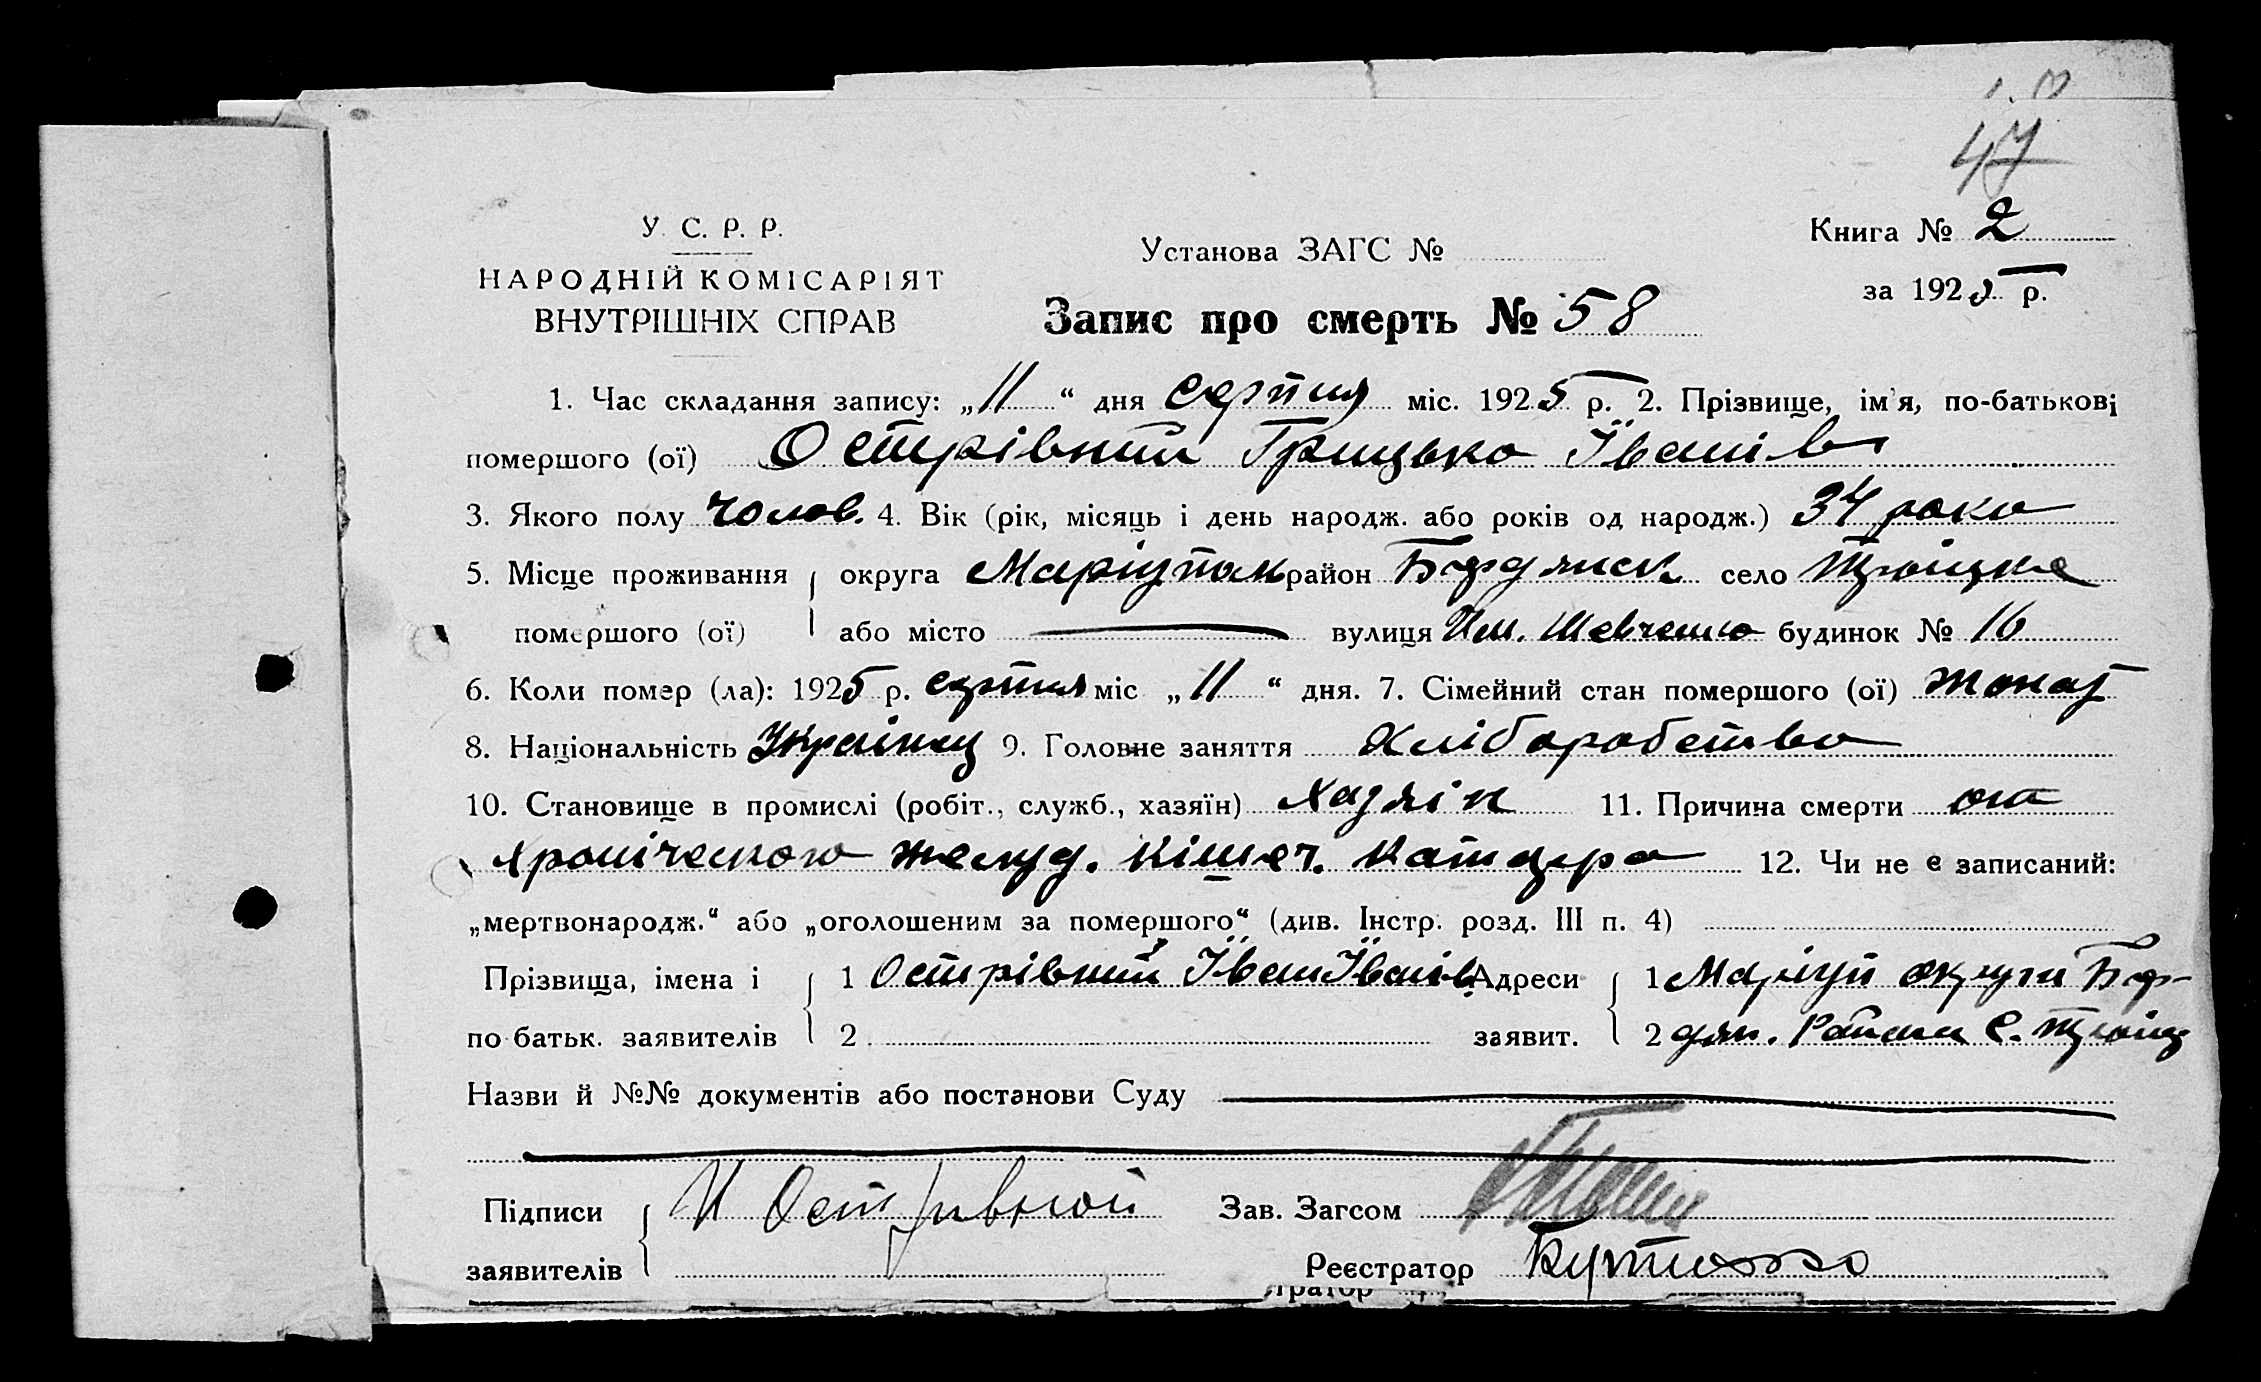 47
У. С. Р. Р.
НАРОДНІЙ КОМІСАРІЯТ
ВНУТРІШНІХ СПРАВ
Установа ЗАГС №
Книга № 2
за 1925 р.
Запис про смерть № 58
1. Час складання запису: „11“ дня серпня міс. 1925 р. 2. Прізвище, ім'я, по-батькові
помершого (ої) Острівний Грицько Іванів
3. Якого полу чолов. 4. Вік (рік, місяць і день народж. або років од народж.) 34 роки
5. Місце проживання округа Маріупол район Бердянск село Троіцке
помершого (ої) або місто вулиця Им. Шевченко будинок № 16
6. Коли помер (ла): 1925 р. серпня міс „11“ дня. 7. Сімейний стан помершого (ої) жонат
8. Національність Українец 9. Головне заняття Хліборобство
10. Становище в промислі (робіт., служб., хазяїн) Хазяін 11. Причина смерти от
хроніческого желуд. кішеч. катара 12. Чи не є записаний:
„мертвонародж.“ або „оголошеним за помершого“ (див. Інстр. розд. III п. 4)
Прізвища, імена і 1 Острівний Іван Іванів Адреси 1 Маріуп округи Бер-
по-батьк. заявителів 2 заявит. 2 дян. Району с. Троіц
Назви й №№ документів або постанови Суду
Підписи И Островной Зав. Загсом
заявителів Реєстратор